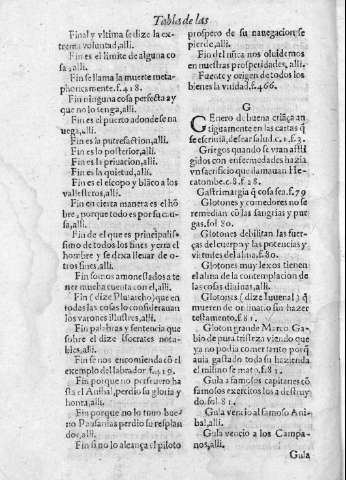 Tabla de las
Final y vltima se dize la ex-
trema voluntad, alli.
Fin es el limite de alguna co
sa, alli.
Fin se llama la muerte meta-
phoricamente. f. 418.
Fin ninguna cosa perfecta ay
que no lo tenga, alli.
Fin es el puerto adonde se na
uega, alli.
Fin es la putrefaction, alli.
Fin es lo posterior, alli.
Fin es la priuacion, alli.
Fin es la quietud, alli.
Fin es el escopo y blãco a los
vallesteros, alli.
Fin en cierta manera es el hõ
bre, porque todo es por su cau-
sa, alli.
Fin de el que es principalis-
simo de todos los fines y era el
hombre y se dexa lleuar de o-
tros fines, alli.
Fin somos amonestados a te
ner mucha cuenta con el, alli.
Fin (dize Plutarcho) que en
todas las cosas lo consideravan
los varones illustres, alli.
Fin palabras y sentencia que
sobre el dize Isocrates nota-
bles, alli.
Fin se nos encomienda cõ el
exemplo del labrador. f. 419.
Fin porque no perseuero ha
sta el Anibal, perdio su gloria y
honra, alli.
Fin porque no lo tuuo bue-
no Pausanias perdio su resplan
dor, alli.
Fin si no lo alcança el piloto
prospero de su nauegacion se
pierde, alli.
Fin del nũca nos oluidemos
en nuestras prosperidades, alli.
Fuente y origen de todos los
bienes la vnidad. f. 466.
G
GEnero de buena criãça an
tiguamente en las cartas q̃
se escriuiã, dessear salud. c. 1. f. 3.
Griegos quando se vian afli
gidos con enfermedades hazia
vn sacrificio que llamauan He-
catombe. c. 8. f. 28.
Gastrimargia q̃ cosa sea. f. 79
Glotones y comedores no se
remedian cõ las sangrias y pur
gas. fol 80.
Glotones debilitan las fuer-
ças del cuerpo y las potencias y
virtudes del alma. f. 80.
Glotones muy lexos tienen
el alma de la contemplacion de
las cosas diuinas, alli.
Glotones (dize Iuuenal) q̃
mueren de ordinario sin hazer
testamento. f. 81.
Gloton grande Marco Ga-
bio de pura tristeza viendo que
ya no podia comer tanto porq̃
auia gastado toda su hazienda
el mismo se mato. f. 81.
Gula a famosos capitanes cõ
famosos exercitos los a destruy
do. fol 81.
Gula vencio al famoso Ani-
bal, alli.
Gula vencio a los Campa-
nos, alli.
Gula